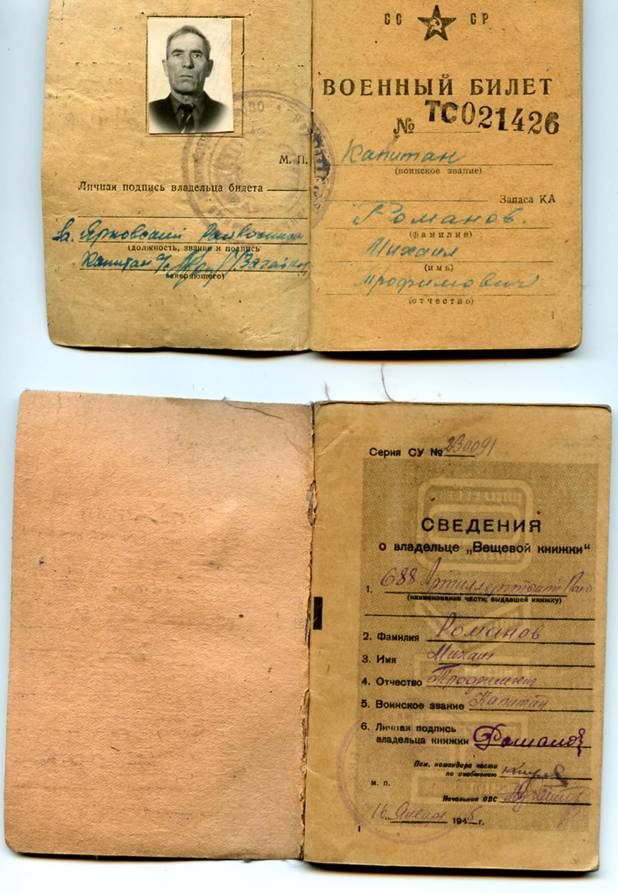 М. П.
Личная подпись владельца билета
За. Ярковский Райвоенком
(должность, звание и подпись
Капитан а/с
заверяющего)
СС СР
ВОЕННЫЙ БИЛЕТ
№ ТС021426
Капитан
(воинское звание)
Запаса КА
Романов.
(фамилия)
Михаил
(имя)
Трофимович
(отчество)
Серия СУ №
СВЕДЕНИЯ
о владельце „Вещевой книжки“
1. 688 Артиллерийский
(наименование части, выдавшей книжку)
2. Фамилия Романов
3. Имя Михаил
4. Отчество
5. Воинское звание Капитан
6. Личная подпись
владельца книжки Романов
Пом. командира части
по снабжению
м. п.
Начальник ОВС
16 Января 194 г.
1